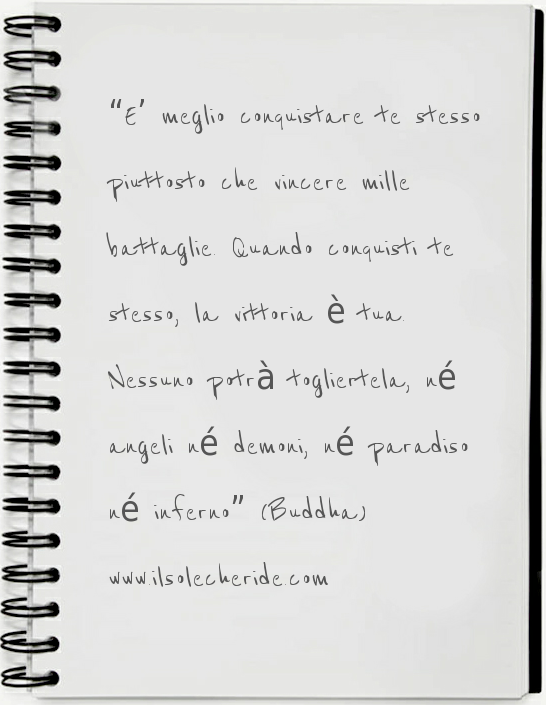 “E’ meglio conquistare te stesso
piuttosto che vincere mille
battaglie. Quando conquisti te
stesso, la vittoria è tua.
Nessuno potrà togliertela, né
angeli né demoni, né paradiso
né inferno” (Buddha)
www.ilsolecheride.com